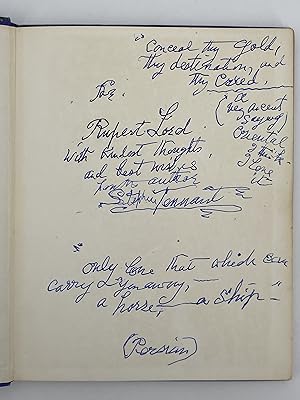 "Conceal thy Gold,
thy destination, and
thy Creed,
For:
(a
very ancient
saying
Oriental
I think
I love
it
Rupert Lord
With kindest thoughts,
and best wishes
from author
Stephen Tennant
"Only love that which can
carry away,—
a horse, — a ship—"
(Persian)